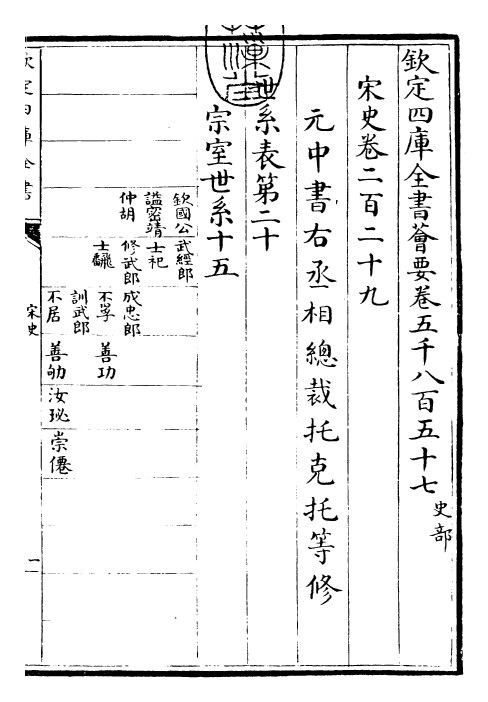 欽定四庫全書薈要卷五千八百五十七 史部
宋史卷二百二十九
元中書右丞相總裁托克托等修
世系表第二十
宗室世系十五
欽國公 武經郎
謚密靖 士祀
仲胡 修武郎 成忠郎
士驪 不孚 善功
訓武郎
不居 善劬 汝珌 崇僊
欽定四庫全書
宋史
一